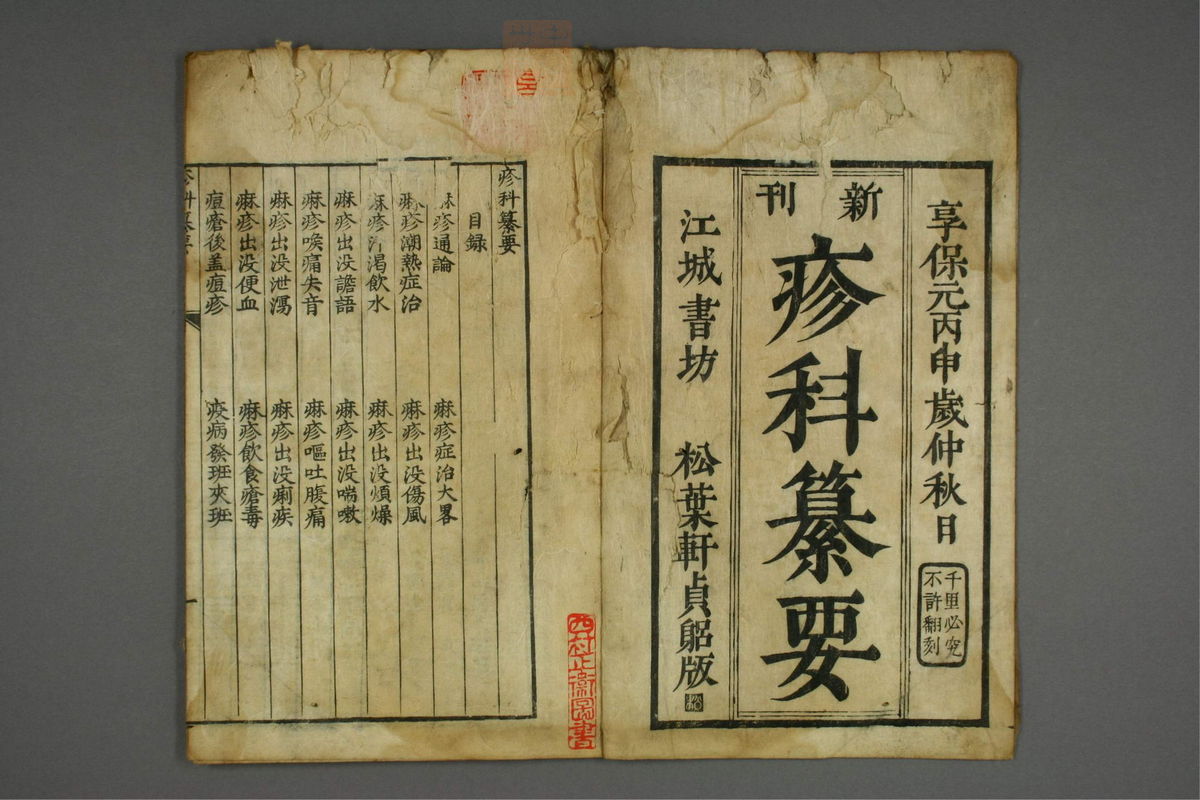 享保元丙申歲仲秋日
千里必究
不許翻刻
新刊
疹科纂要
江城書坊 松葉軒貞躬版
疹科纂要
目録
痳疹通論 痳疹症治大畧
痳疹潮熱症治 痳疹出没傷風
痳疹作渴飲水 痳疹出没煩燥
痳疹出没譫語 痳疹出没喘嗽
痳疹喉痛失音 痳疹嘔吐腹痛
痳疹出没泄瀉 痳疹出没痢疾
痳疹出没便血 痳疹飲食瘡毒
痘瘡後盖痘疹 疫病發班夾班
疹科纂要
一